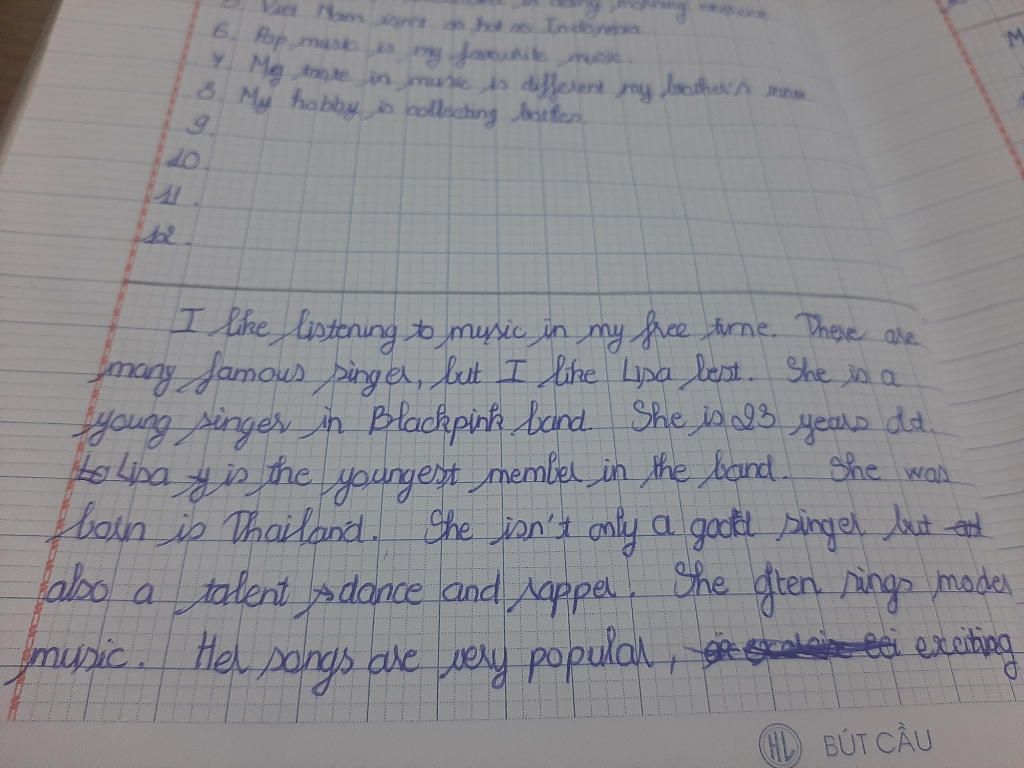 5. Viet Nam isn't as hot as Indonesia
6. Pop music is my favourite music.
7. My taste in music is different my brother's
8. My hobby is collecting
9.
10.
11.
12.
I like listening to music in my free time. There are
many famous singer, but I like Lisa best. She is a
young singer in Blackpink band. She is 23 years old.
Lisa is the youngest member in the band. She was
born is Thailand. She isn't only a good singer but
also a talent dance and rapper. She often sings moder
music. Her songs are very popular, exciting
HL BÚT CẦU